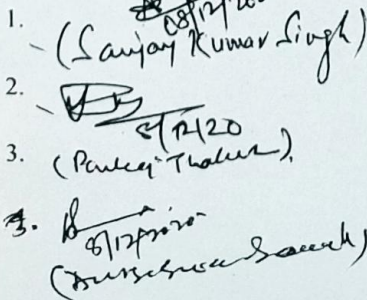 1.
08/12/20
(Sanjay Kumar Singh)
2.
8/12/20
3.
(Pankaj Thakur).
3.
8/12/2020